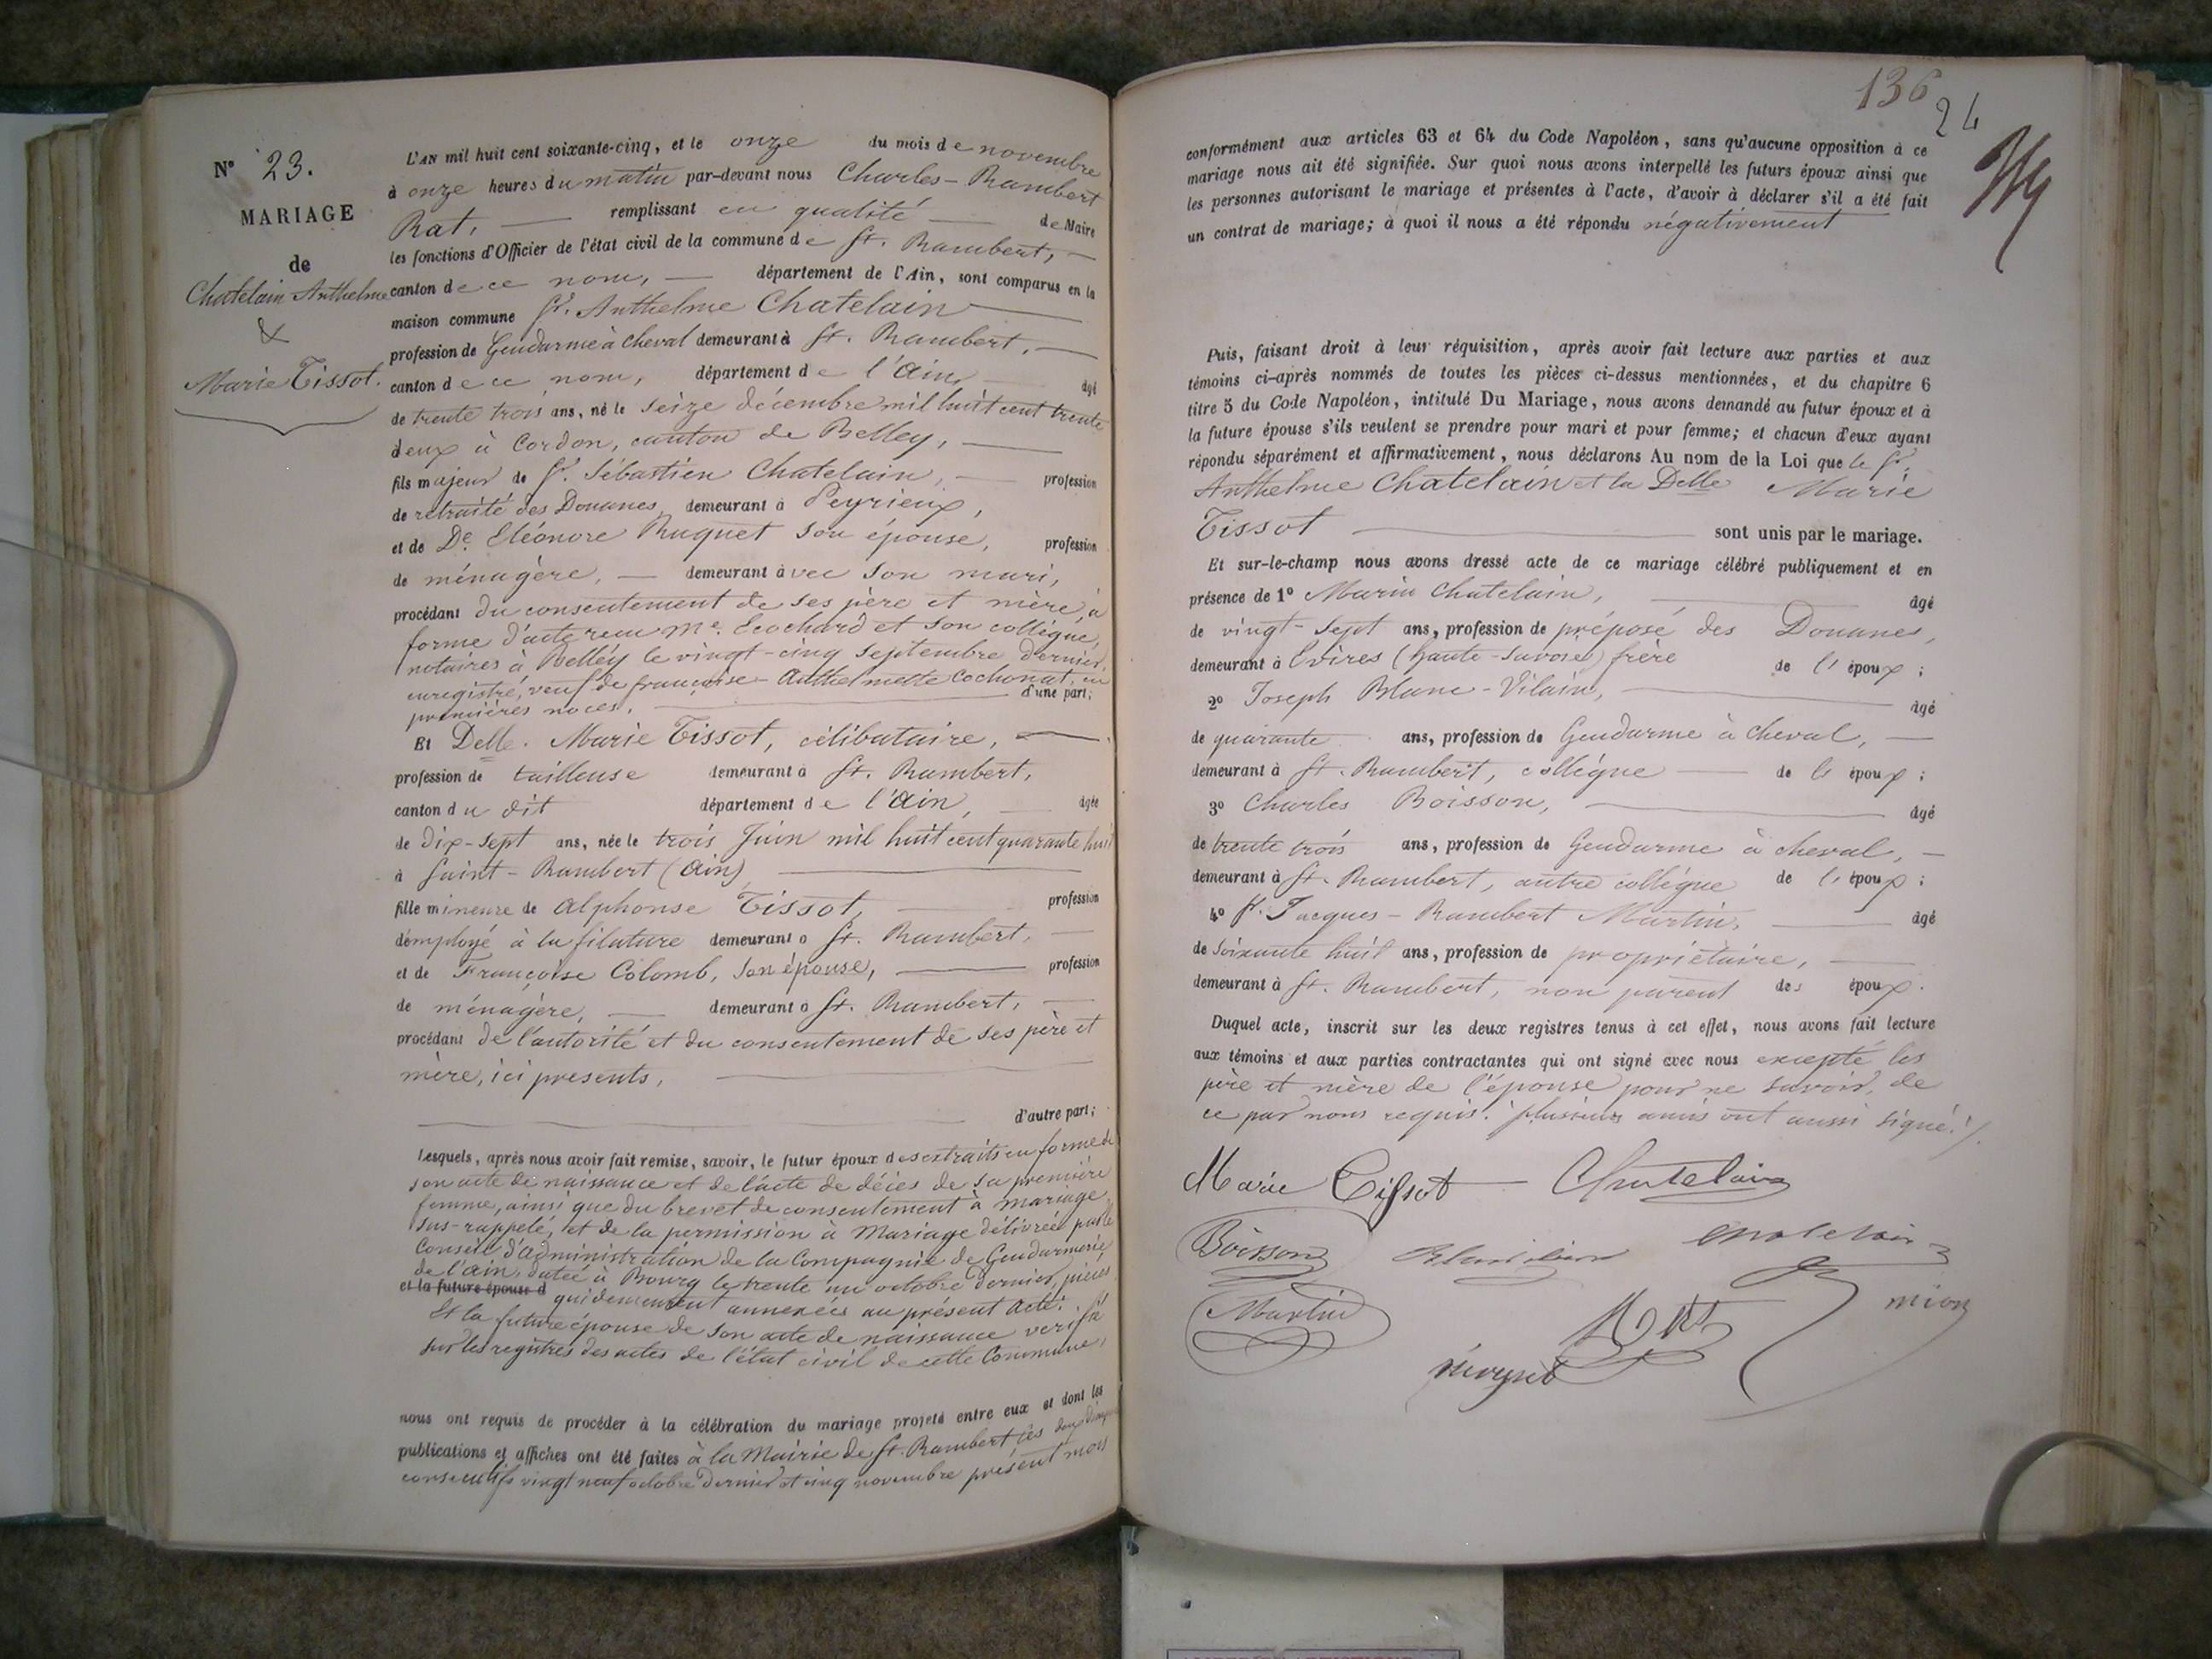 N° 23.
MARIAGE
de
Chatelain Anthelme
&
Marie Tissot.
L'AN mil huit cent soixante-cinq, et le onze du mois de novembre
à onze heures du matin par-devant nous Charles-Rambert
Rat, remplissant en qualité de Maire
les fonctions d'Officier de l'état civil de la commune de St. Rambert,
canton de ce nom, département de l'Ain, sont comparus en la
maison commune Sr. Anthelme Chatelain
profession de Gendarme à cheval demeurant à St. Rambert,
canton de ce nom, département de l'Ain, âgé
de trente trois ans, né le seize décembre mil huit cent trente
deux à Cordon, canton de Belley,
fils majeur de Sr. Sébastien Chatelain, profession
de retraité des Douanes, demeurant à Peyrieux,
et de De. Eléonore Ruquet son épouse, profession
de ménagère, demeurant avec son mari,
procédant du consentement de ses père et mère, à
forme d'acte reçu Me. Ecochard et son collègue,
notaires à Belley le vingt-cinq septembre dernier,
enregistré, veuf de françoise-Anthelmette Cochonat, en
premières noces, d'une part;
Et Delle. Marie Tissot, célibataire,
profession de tailleuse demeurant à St. Rambert,
canton du dit département de l'Ain, âgée
de dix-sept ans, née le trois Juin mil huit cent quarante huit
à Saint-Rambert (Ain)
fille mineure de Alphonse Tissot, profession
d'employé à la filature demeurant à St. Rambert,
et de Françoise Colomb, son épouse, profession
de ménagère, demeurant à St. Rambert,
procédant de l'autorité et du consentement de ses père et
mère, ici presents,
d'autre part;
Lesquels, après nous avoir fait remise, savoir, le futur époux des extraits en forme de
son acte de naissance et de l'acte de décès de sa première
femme, ainsi que du brevet de consentement à mariage
sus-rappelé, et de la permission à Mariage délivrée par le
Conseil d'administration de la Compagnie de Gendarmerie
de l'Ain, datée à Bourg le trente un octobre dernier, pièces
et la future épouse d qui demeurent annexées au présent acte.
Et la future épouse de son acte de naissance verifié
sur les registres des actes de l'état civil de cette Commune,
nous ont requis de procéder à la célébration du mariage projeté entre eux et dont les
publications et affiches ont été faites à la Mairie de St. Rambert les deux dimanches
consecutifs vingt neuf octobre dernier et cinq novembre présent mois
136
24
conformément aux articles 63 et 64 du Code Napoléon, sans qu'aucune opposition à ce
mariage nous ait été signifiée. Sur quoi nous avons interpellé les futurs époux ainsi que
les personnes autorisant le mariage et présentes à l'acte, d'avoir à déclarer s'il a été fait
un contrat de mariage; à quoi il nous a été répondu négativement
Puis, faisant droit à leur réquisition, après avoir fait lecture aux parties et aux
témoins ci-après nommés de toutes les pièces ci-dessus mentionnées, et du chapitre 6
titre 5 du Code Napoléon, intitulé Du Mariage, nous avons demandé au futur époux et à
la future épouse s'ils veulent se prendre pour mari et pour femme; et chacun d'eux ayant
répondu séparément et affirmativement, nous déclarons Au nom de la Loi que le Sr.
Anthelme Chatelain et la Delle Marie
Tissot sont unis par le mariage.
Et sur-le-champ nous avons dressé acte de ce mariage célébré publiquement et en
présence de 1° Marin Chatelain, âgé
de vingt-sept ans, profession de préposé des Douanes,
demeurant à Evires (haute-Savoie) frère de l' époux;
2° Joseph Blanc-Vilain, âgé
de quarante ans, profession de Gendarme à cheval,
demeurant à St. Rambert, collègue de l' époux;
3° Charles Boisson, âgé
de trente trois ans, profession de Gendarme à cheval,
demeurant à St. Rambert, autre collègue de l' époux;
4° Sr. Jacques-Rambert Martin, âgé
de soixante huit ans, profession de propriétaire,
demeurant à St. Rambert, non parent des époux.
Duquel acte, inscrit sur les deux registres tenus à cet effet, nous avons fait lecture
aux témoins et aux parties contractantes qui ont signé avec nous excepté les
père et mère de l'épouse pour ne savoir, de
ce par nous requis. plusieurs amis ont aussi signé./.
Marie Tissot Chatelain
Boisson Blanvilain Chatelain
Martin Rat mion